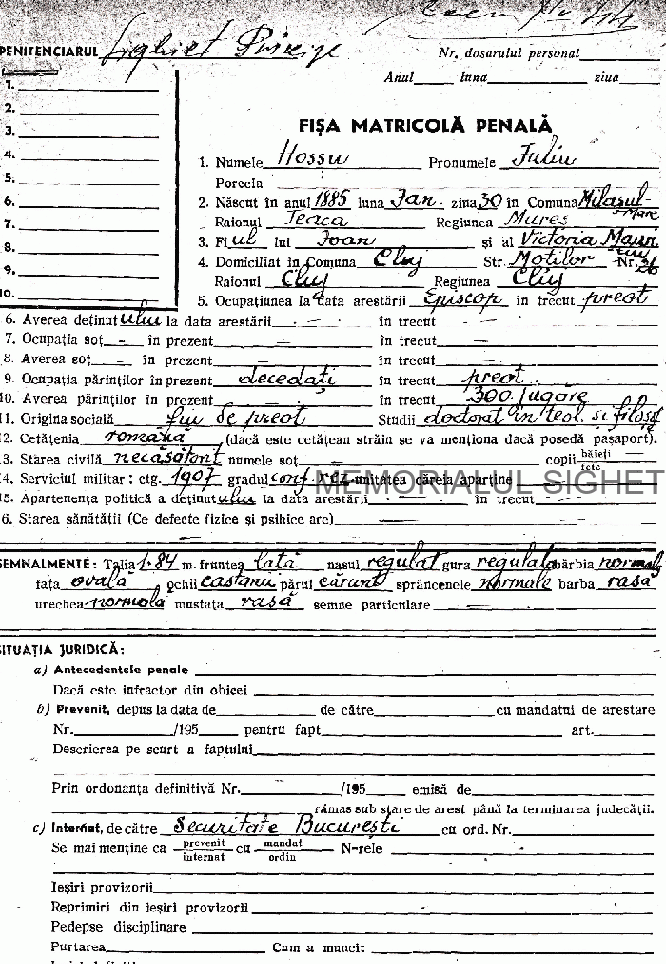 PENITENCIARUL Sighet Principe
Nr. dosarului personal
Anul luna ziua
1.
2.
3.
4.
5.
6.
7.
8.
9.
10.
FIȘA MATRICOLĂ PENALĂ
1. Numele Hossu Pronumele Iuliu
Porecla
2. Născut în anul 1885 luna Jan. ziua 30 în Comuna Milasul-Mare
Raionul Teaca Regiunea Mureș
3. Fiul lui Ioan și al Victoria
4. Domiciliat în Comuna Cluj Str. Moților Nr. 26
Raionul Cluj Regiunea Cluj
5. Ocupațiunea la data arestării Episcop în trecut preot
6. Averea deținutului la data arestării - — - în trecut - — -
7. Ocupația soț - în prezent — în trecut —
8. Averea soț - în prezent — în trecut —
9. Ocupația părinților în prezent decedați în trecut preot
10. Averea părinților în prezent — în trecut 300 jugăre
11. Originea socială fiu de preot Studii doctorat în teol. si filosofie
12. Cetățenia română (dacă este cetățean străin se va menționa dacă posedă pașaport).
13. Starea civilă necăsătorit numele soț — copii băieți — fete —
14. Serviciul militar: ctg. 1907 gradul conf. rez. unitatea căreia aparține —
MEMORIALUL SIGHET
15. Apartenența politică a deținutului la data arestării — în trecut —
16. Starea sănătății (Ce defecte fizice și psihice are) —
SEMNALMENTE: Talia 1.84 m. fruntea lată nasul regulat gura regulată bărbia normală
fața ovală ochii castanii părul cărunt sprâncenele normale barba rasă
urechea normală mustața rasă semne particulare —
SITUAȚIA JURIDICĂ:
a) Antecedentele penale
Dacă este infractor din obicei
b) Prevenit, depus la data de de către cu mandatul de arestare
Nr. /195 pentru fapt art.
Descrierea pe scurt a faptului
Prin ordonanța definitivă Nr. /195 emisă de
rămas sub stare de arest până la terminarea judecății.
c) Internat, de către Securitate București cu ord. Nr.
Se mai menține ca prevenit internat cu mandat ordin N-rele
Ieșiri provizorii
Reprimiri din ieșiri provizorii
Pedepse disciplinare
Purtarea Cum a muncit: